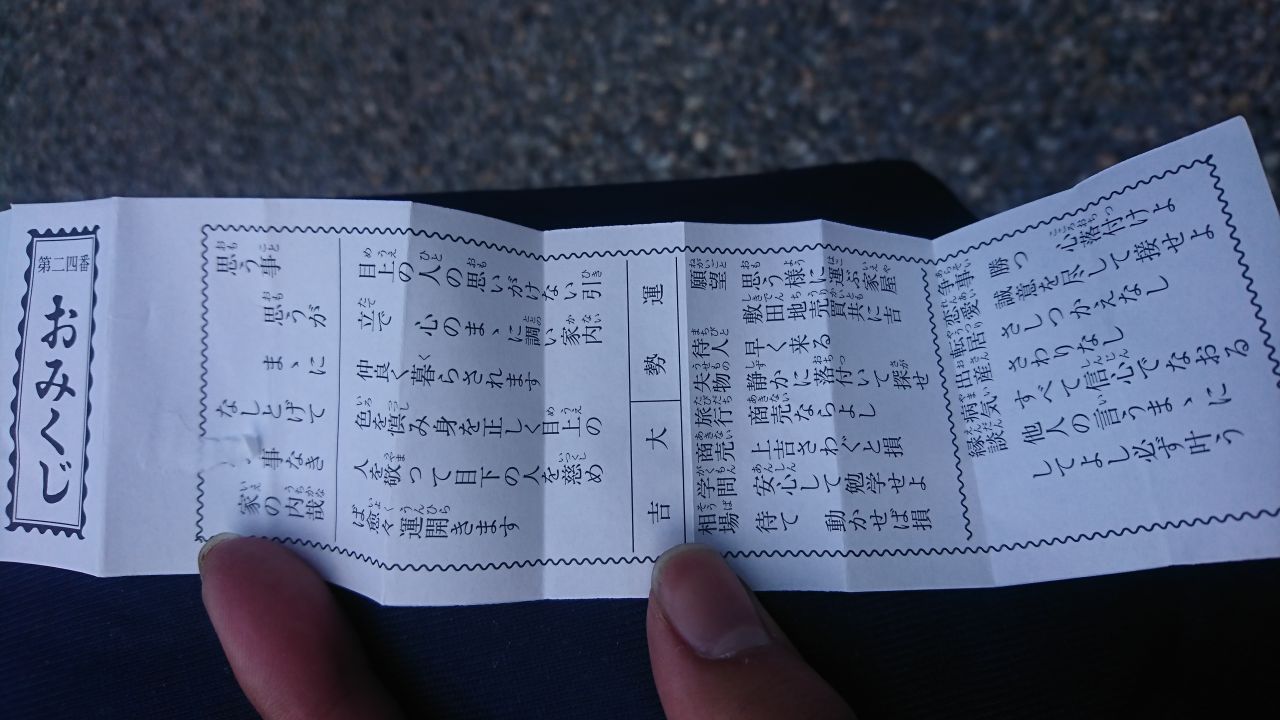 第二四番
おみくじ
思う事
思うが
まゝに
なしとげて
事なき
家の内哉
目上の人の思いがけない引
立で 心のまゝに調い家内
仲良く暮らされます
色を慎み身を正しく目上の
人を敬って目下の人を慈め
ば愈々運開きます
運勢
大吉
願望 思う様に運ぶ家屋
敷田地売買共に吉
待人 早く来る
失物 静かに落付いて探せ
旅行 商売ならよし
商売 上吉さわぐと損
学問 安心して勉学せよ
相場 待て 動かせば損
争事 勝つ 心落付けよ
恋愛 誠意を尽して接せよ
転居 さしつかえなし
お産 さわりなし
病気 すべて信心でなおる
縁談 他人の言うまゝに
してよし必ず叶う